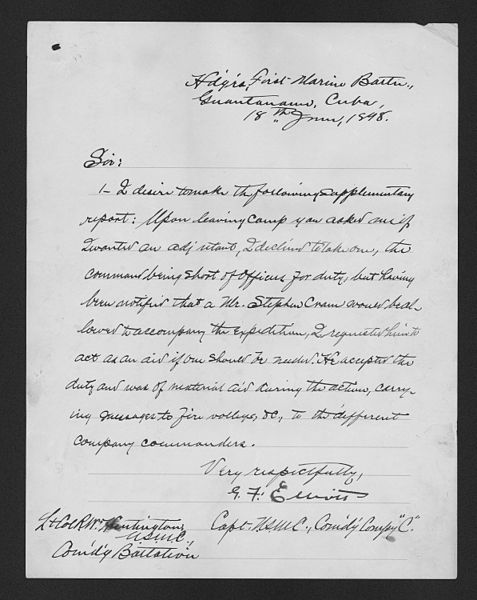 Hdqrs, First Marine Battn.,
Guantanamo, Cuba,
18th June, 1898.
Sir:
1- I desire to make the following supplementary
report: Upon leaving camp you asked me if
I wanted an adjutant, I declined to take one, the
command being short of officers for duty, but having
been notified that a Mr. Stephen Crane would be al-
lowed to accompany the expedition, I requested him to
act as an aid if one should be needed. He accepted the
duty and was of material aid during the action, carry-
ing messages to fire volleys, &c., to the different
company commanders.
Very respectfully,
G. F. Elliott
Capt. U.S.M.C., Comd'g Comp'y "C".
Lt Col R.W. Huntington,
U.S.M.C.,
Comd'g Battalion